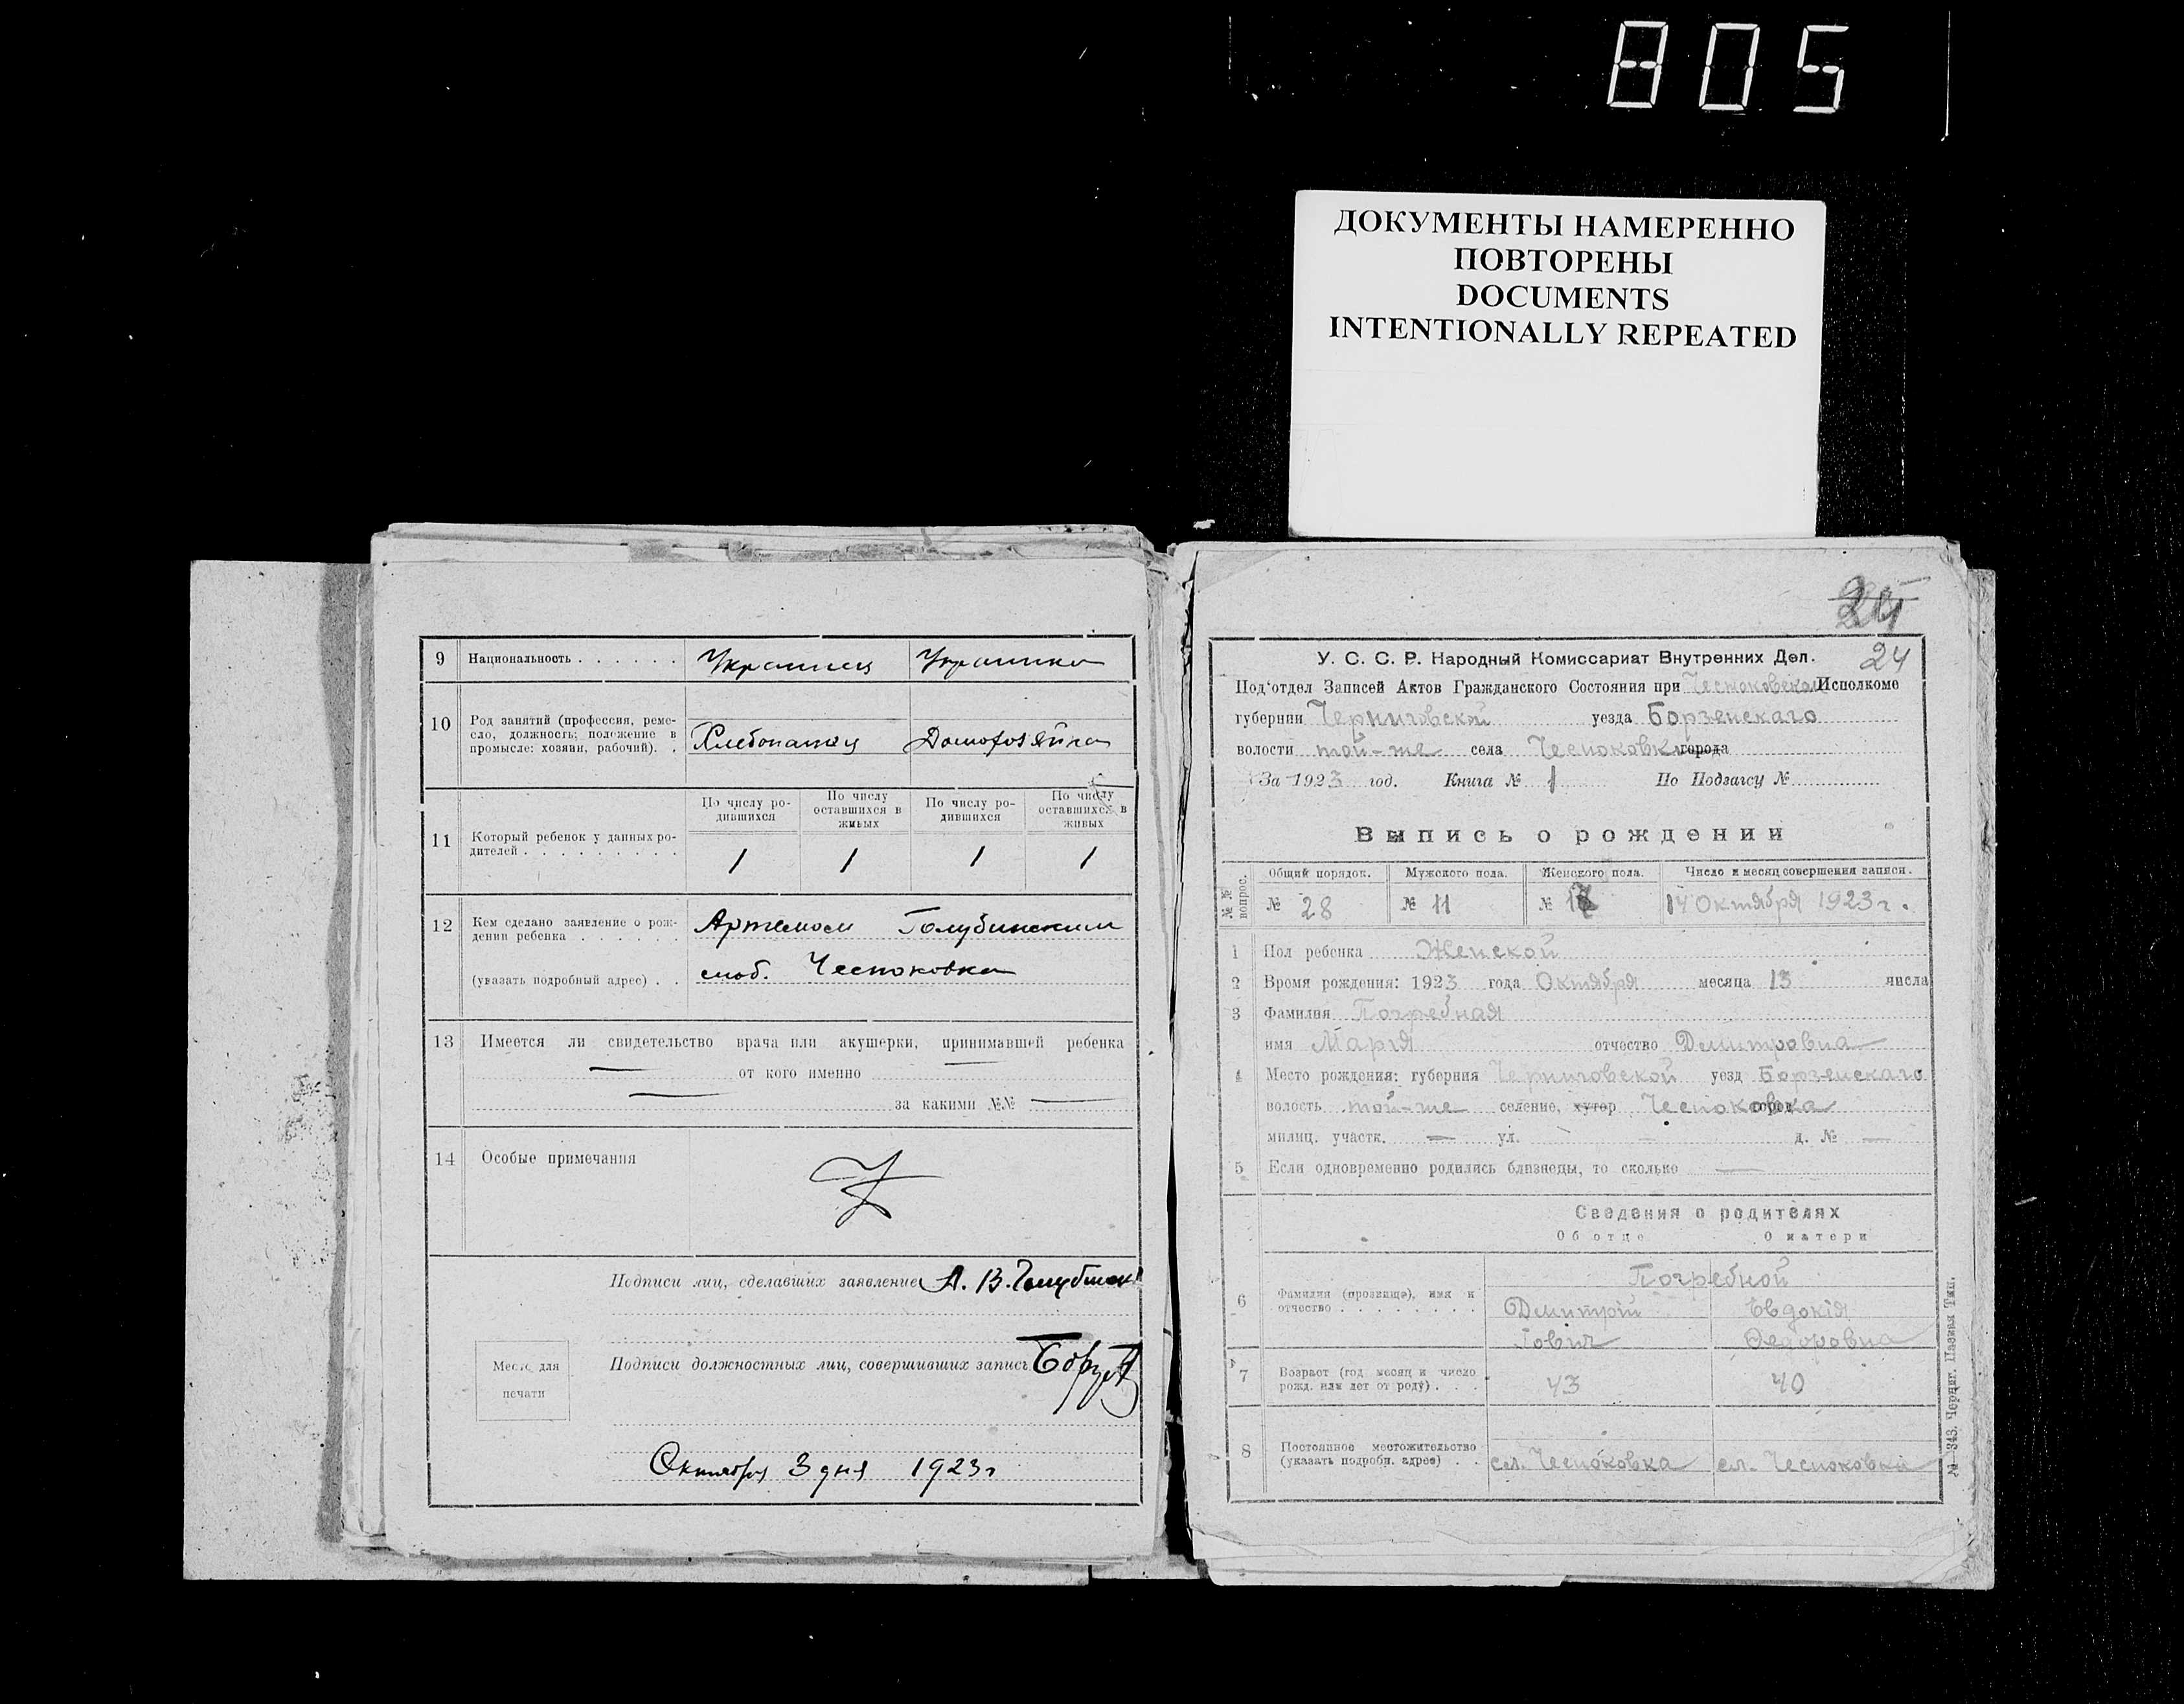 805
ДОКУМЕНТЫ НАМЕРЕННО
ПОВТОРЕНЫ
DOCUMENTS
INTENTIONALLY REPEATED
9 Национальность . . . . . . Украинец Украинка
10 Род занятий (профессия, реме-
сло, должность; положение в
промысле: хозяин, рабочий). . Хлебопашец Домохозяйка
По числу ро-
дившихся
По числу
оставшихся в
живых
По числу ро-
дившихся
По числу
оставшихся в
живых
11 Который ребенок у данных ро-
дителей . . . . . . . . . 1 1 1 1
12 Кем сделано заявление о рож-
дении ребенка . . . . . . Артемом Голубинским
(указать подробный адрес) . . слоб. Чесноковка
13 Имеется ли свидетельство врача или акушерки, принимавшей ребенка
— от кого именно —
— за какими №№ —
14 Особые примечания
Подписи лиц, сделавших заявление А. В.
Подписи должностных лиц, совершивших запись
Место для
печати
Октября 3 дня 1923 г
24
У. С. С. Р. Народный Комиссариат Внутренних Дел.
Под'отдел Записей Актов Гражданского Состояния при Чесноковском Исполкоме
губернии Черниговской уезда Борзенскаго
волости той-же села Чесноковка города
За 1923 год. Книга № 1 По Подзагсу №
Выпись о рождении
№№ вопрос. Общий порядок. Мужского пола. Женского пола. Число и месяц совершения записи.
№ 28 № 11 № 17 14 Октября 1923 г.
1 Пол ребенка Женской
2 Время рождения: 1923 года Октября месяца 13 числа
3 Фамилия Погребная
имя Марія отчество Дмитровна
4 Место рождения: губерния Черниговской уезд Борзенскаго
волость той-же селение, хутор Чесноковка город
милиц. участк. — ул. — д. № —
5 Если одновременно родились близнецы, то сколько —
Сведения о родителях
Об отце О матери
Погребной
6 Фамилия (прозвище), имя и
отчество . . . . . . . . Дмитрій Евдокія
Іович Федоровна
7 Возраст (год месяц и число
рожд. или лет от роду) . . . 43 40
8 Постоянное местожительство
(указать подробн. адрес) . . сл. Чесноковка сл. Чесноковка
№ 343. Черниг. Паевая Тип.